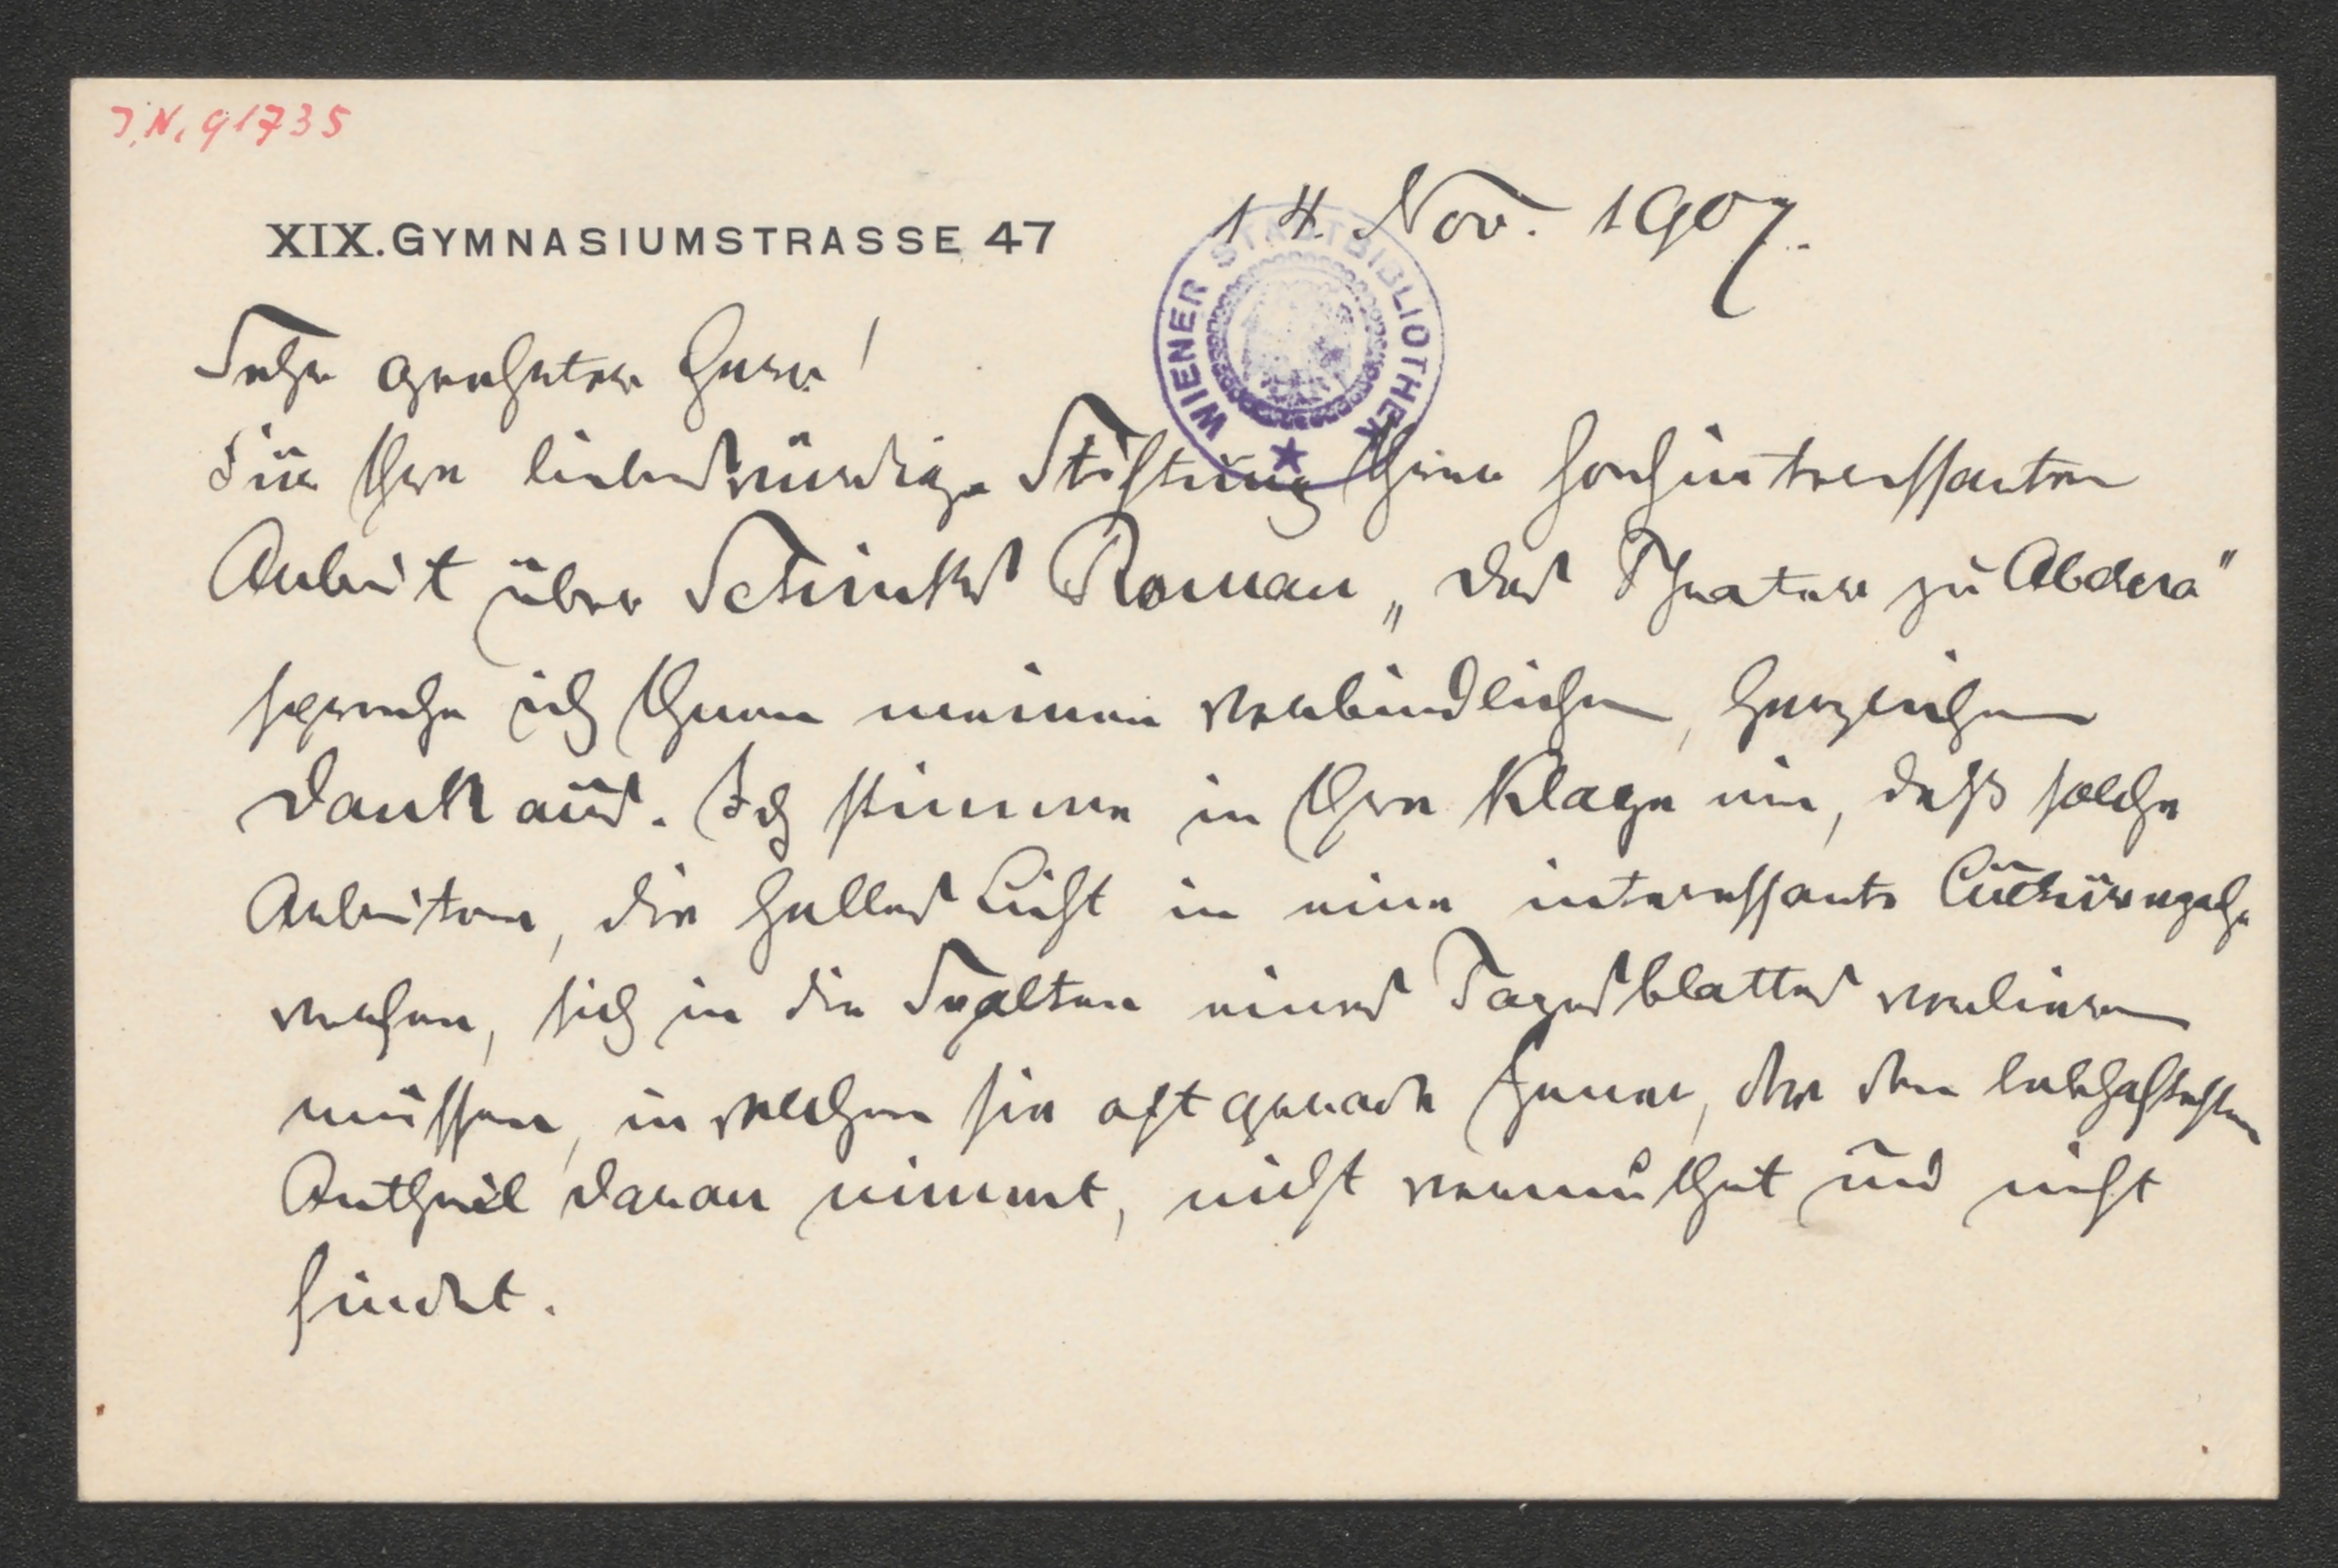 J.N. 91735
XIX. GYMNASIUMSTRASSE 47
14. Nov. 1907.
WIENER STADTBIBLIOTHEK
Sehr geehrter Herr!
Für Ihre liebenswürdige Stiftung Ihrer hochinteressanten
Arbeit über Schinks Roman „das Theater zu Abdera"
spreche ich Ihnen meinen verbindlichen, herzlichen
Dank aus. Ich stimme in Ihre Klage ein, dass solche
Arbeiten, die helles Licht in eine interessante
werfen, sich in die Spalten eines Tagesblattes verlieren
müssen, in welchen sie oft gerade Jener, der den lebhaftesten
Antheil daran nimmt, nicht vermuthet und nicht
findet.